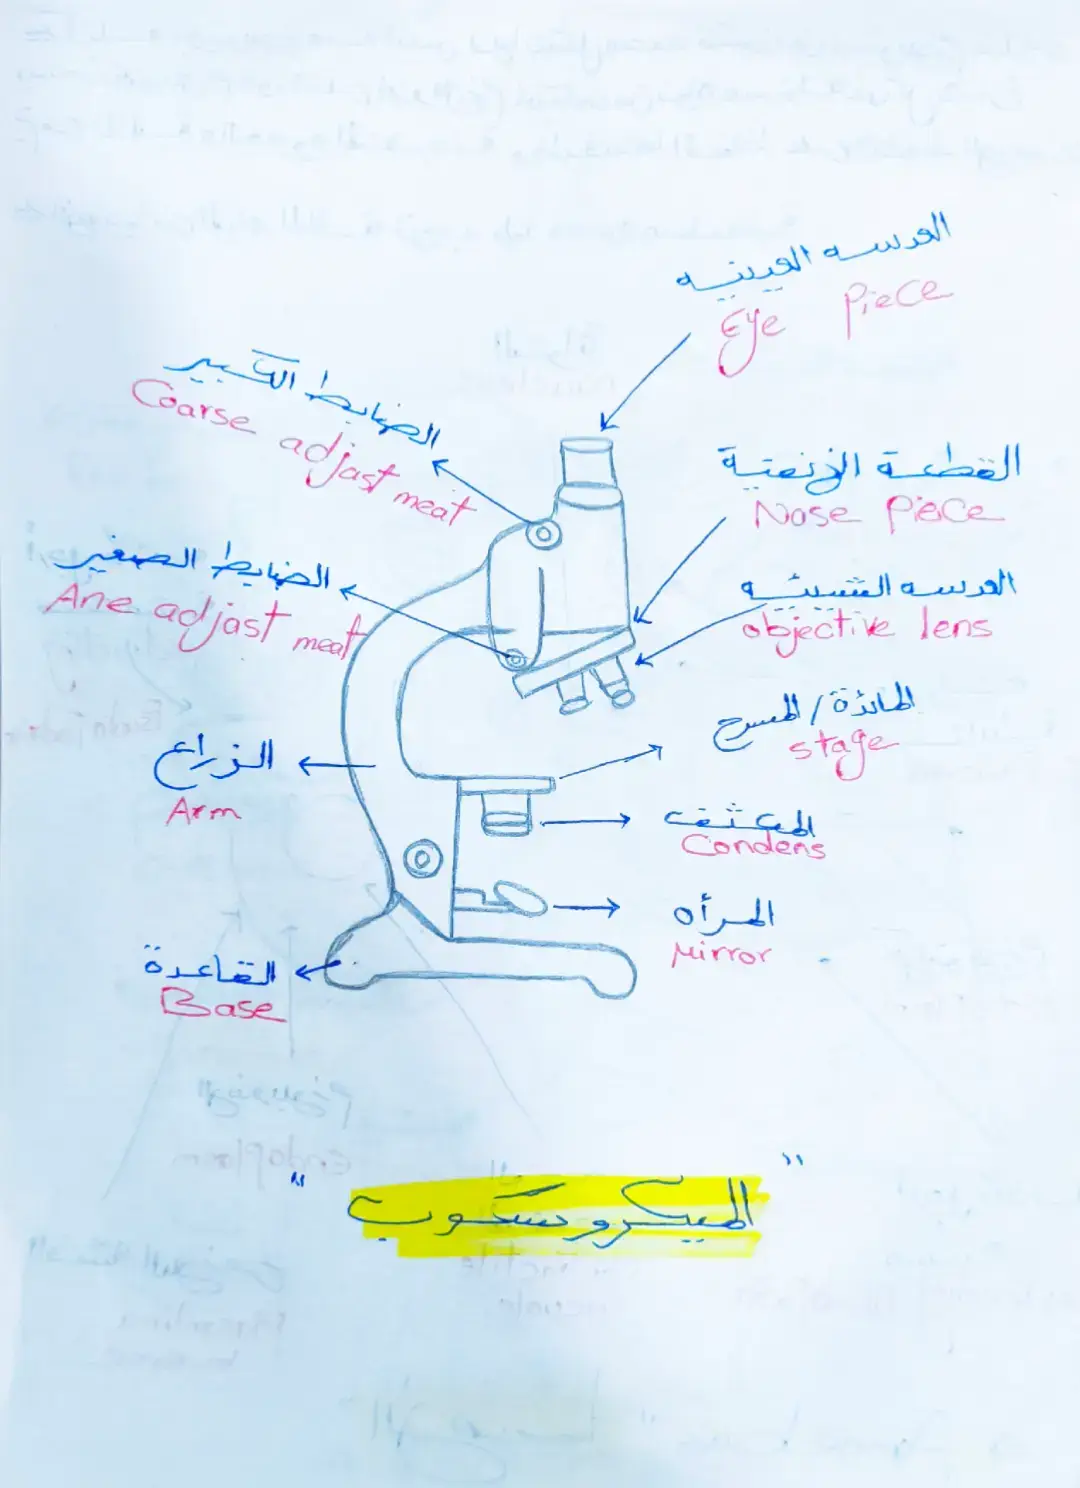 العدسه العينيه
Eye Piece
الضابط الكبير
Coarse adjast meat
القطعة الأنفية
Nose Piece
الضابط الصغير
Ane adjast meat
العدسه الشيئيه
objective lens
المائدة / المسرح
stage
الزراع
Arm
المكثف
Condens
المرأه
Mirror
القاعدة
Base
"الميكروسكوب"